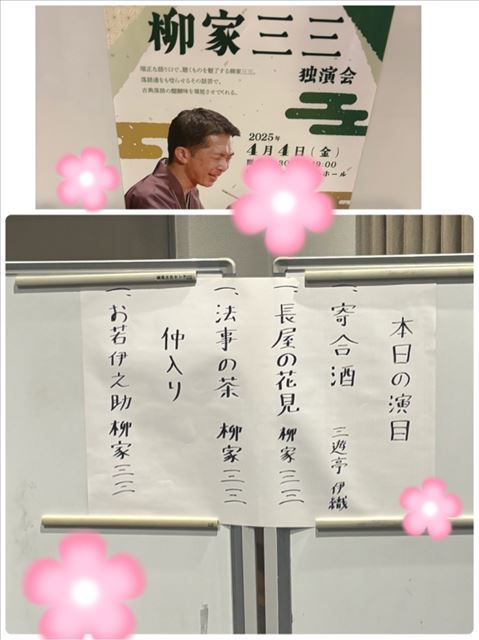 柳家三三
独演会
端正な語り口で、聴くものを魅了する柳家三三。
落語通をも唸らせるその話芸で、
古典落語の醍醐味を堪能させてくれる。
2025年
4月4日(金)
ホール
本日の演目
一、寄合酒 三遊亭 伊織
一、長屋の花見 柳家 三三
一、法事の茶 柳家 三三
仲入り
一、お若伊之助 柳家 三三